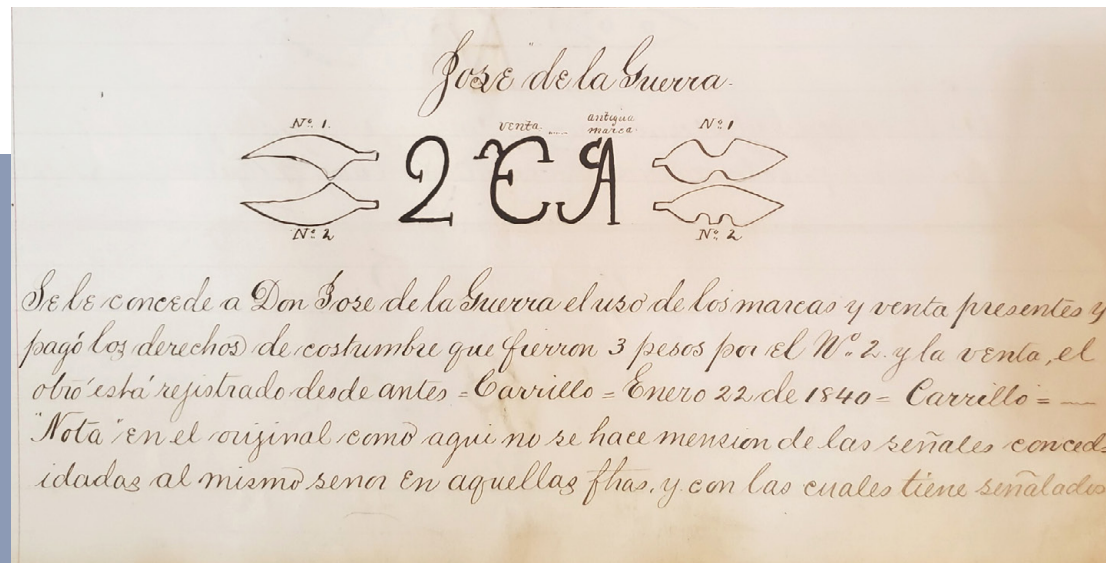 Jose de la Guerra.
Nº 1. venta antigua Nº 1
marca.
2 E A
Nº 2 Nº 2
Se le concede a Don Jose de la Guerra el uso de los marcas y venta presentes y
pagó los derechos de costumbre que fierron 3 pesos por el Nº 2. y la venta, el
otro está rejistrado desde antes = Carrillo = Enero 22 de 1840 = Carrillo =
"Nota" en el original como aqui no se hace mension de las señales conced=
idadas al mismo senor en aquellas fhas, y con las cuales tiene señalados